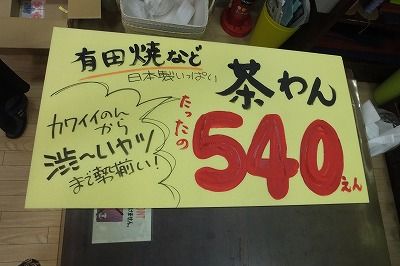 有田焼など
日本製いっぱい
茶わん
たったの
540えん
カワイイのん
から
渋〜いヤツ
まで勢揃い!